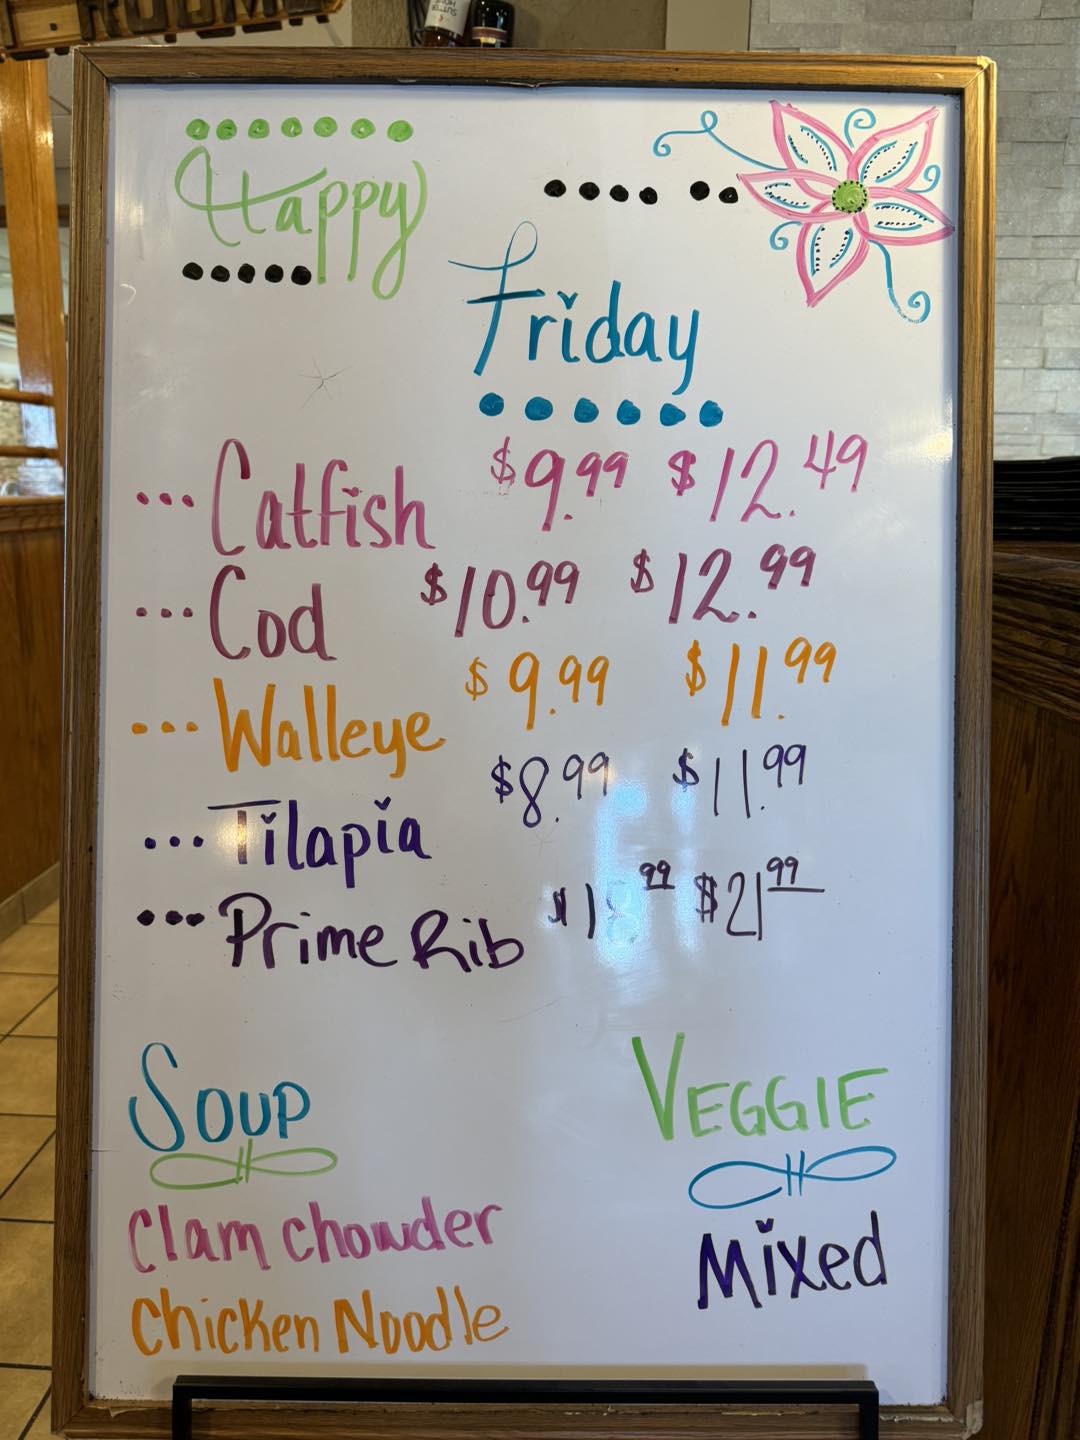 Happy
Friday
... Catfish $9.99 $12.49
... Cod $10.99 $12.99
... Walleye $9.99 $11.99
... Tilapia $8.99 $11.99
... Prime Rib $18.99 $21.99
Soup
Clam chowder
Chicken Noodle
VEGGIE
Mixed